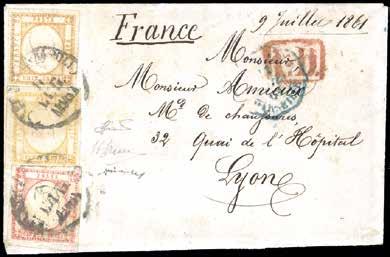 France
9 Juillet 1861
Monsieur
Monsieur Amieux
Md. de chaussures
32 Quai de l'Hôpital
Lyon